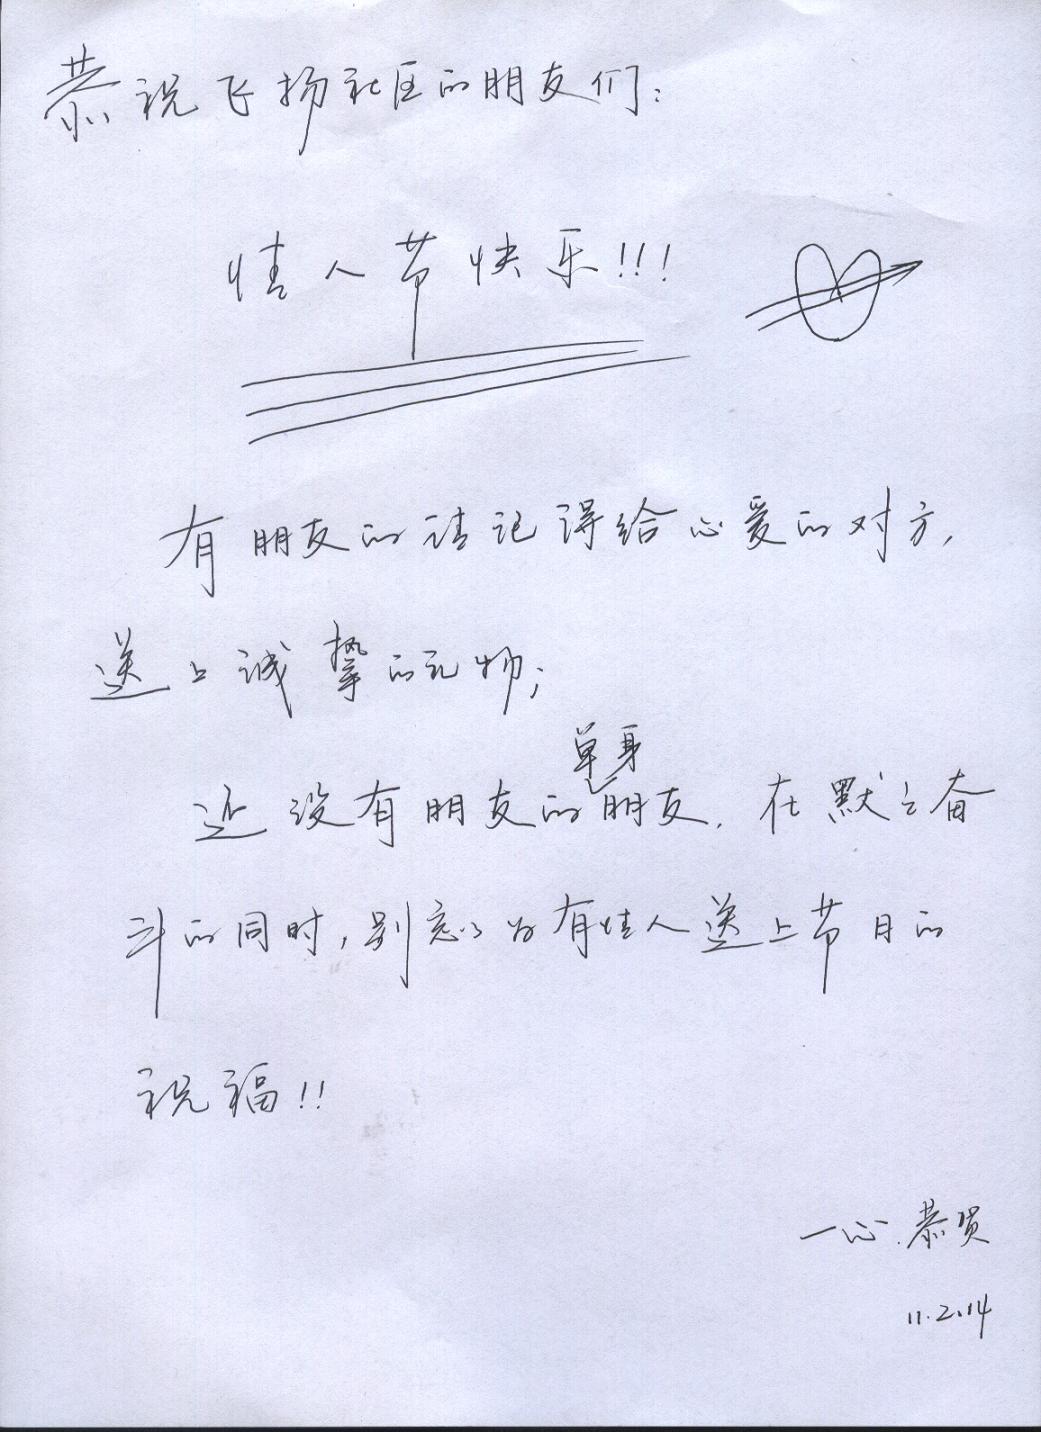 恭祝飞扬社区的朋友们:
情人节快乐!!!
有朋友的请记得给心爱的对方,
送上诚挚的礼物;
还没有朋友的单身朋友,在默々奋
斗的同时,别忘了为有情人送上节日的
祝福!!
一心.恭贺
11.2.14